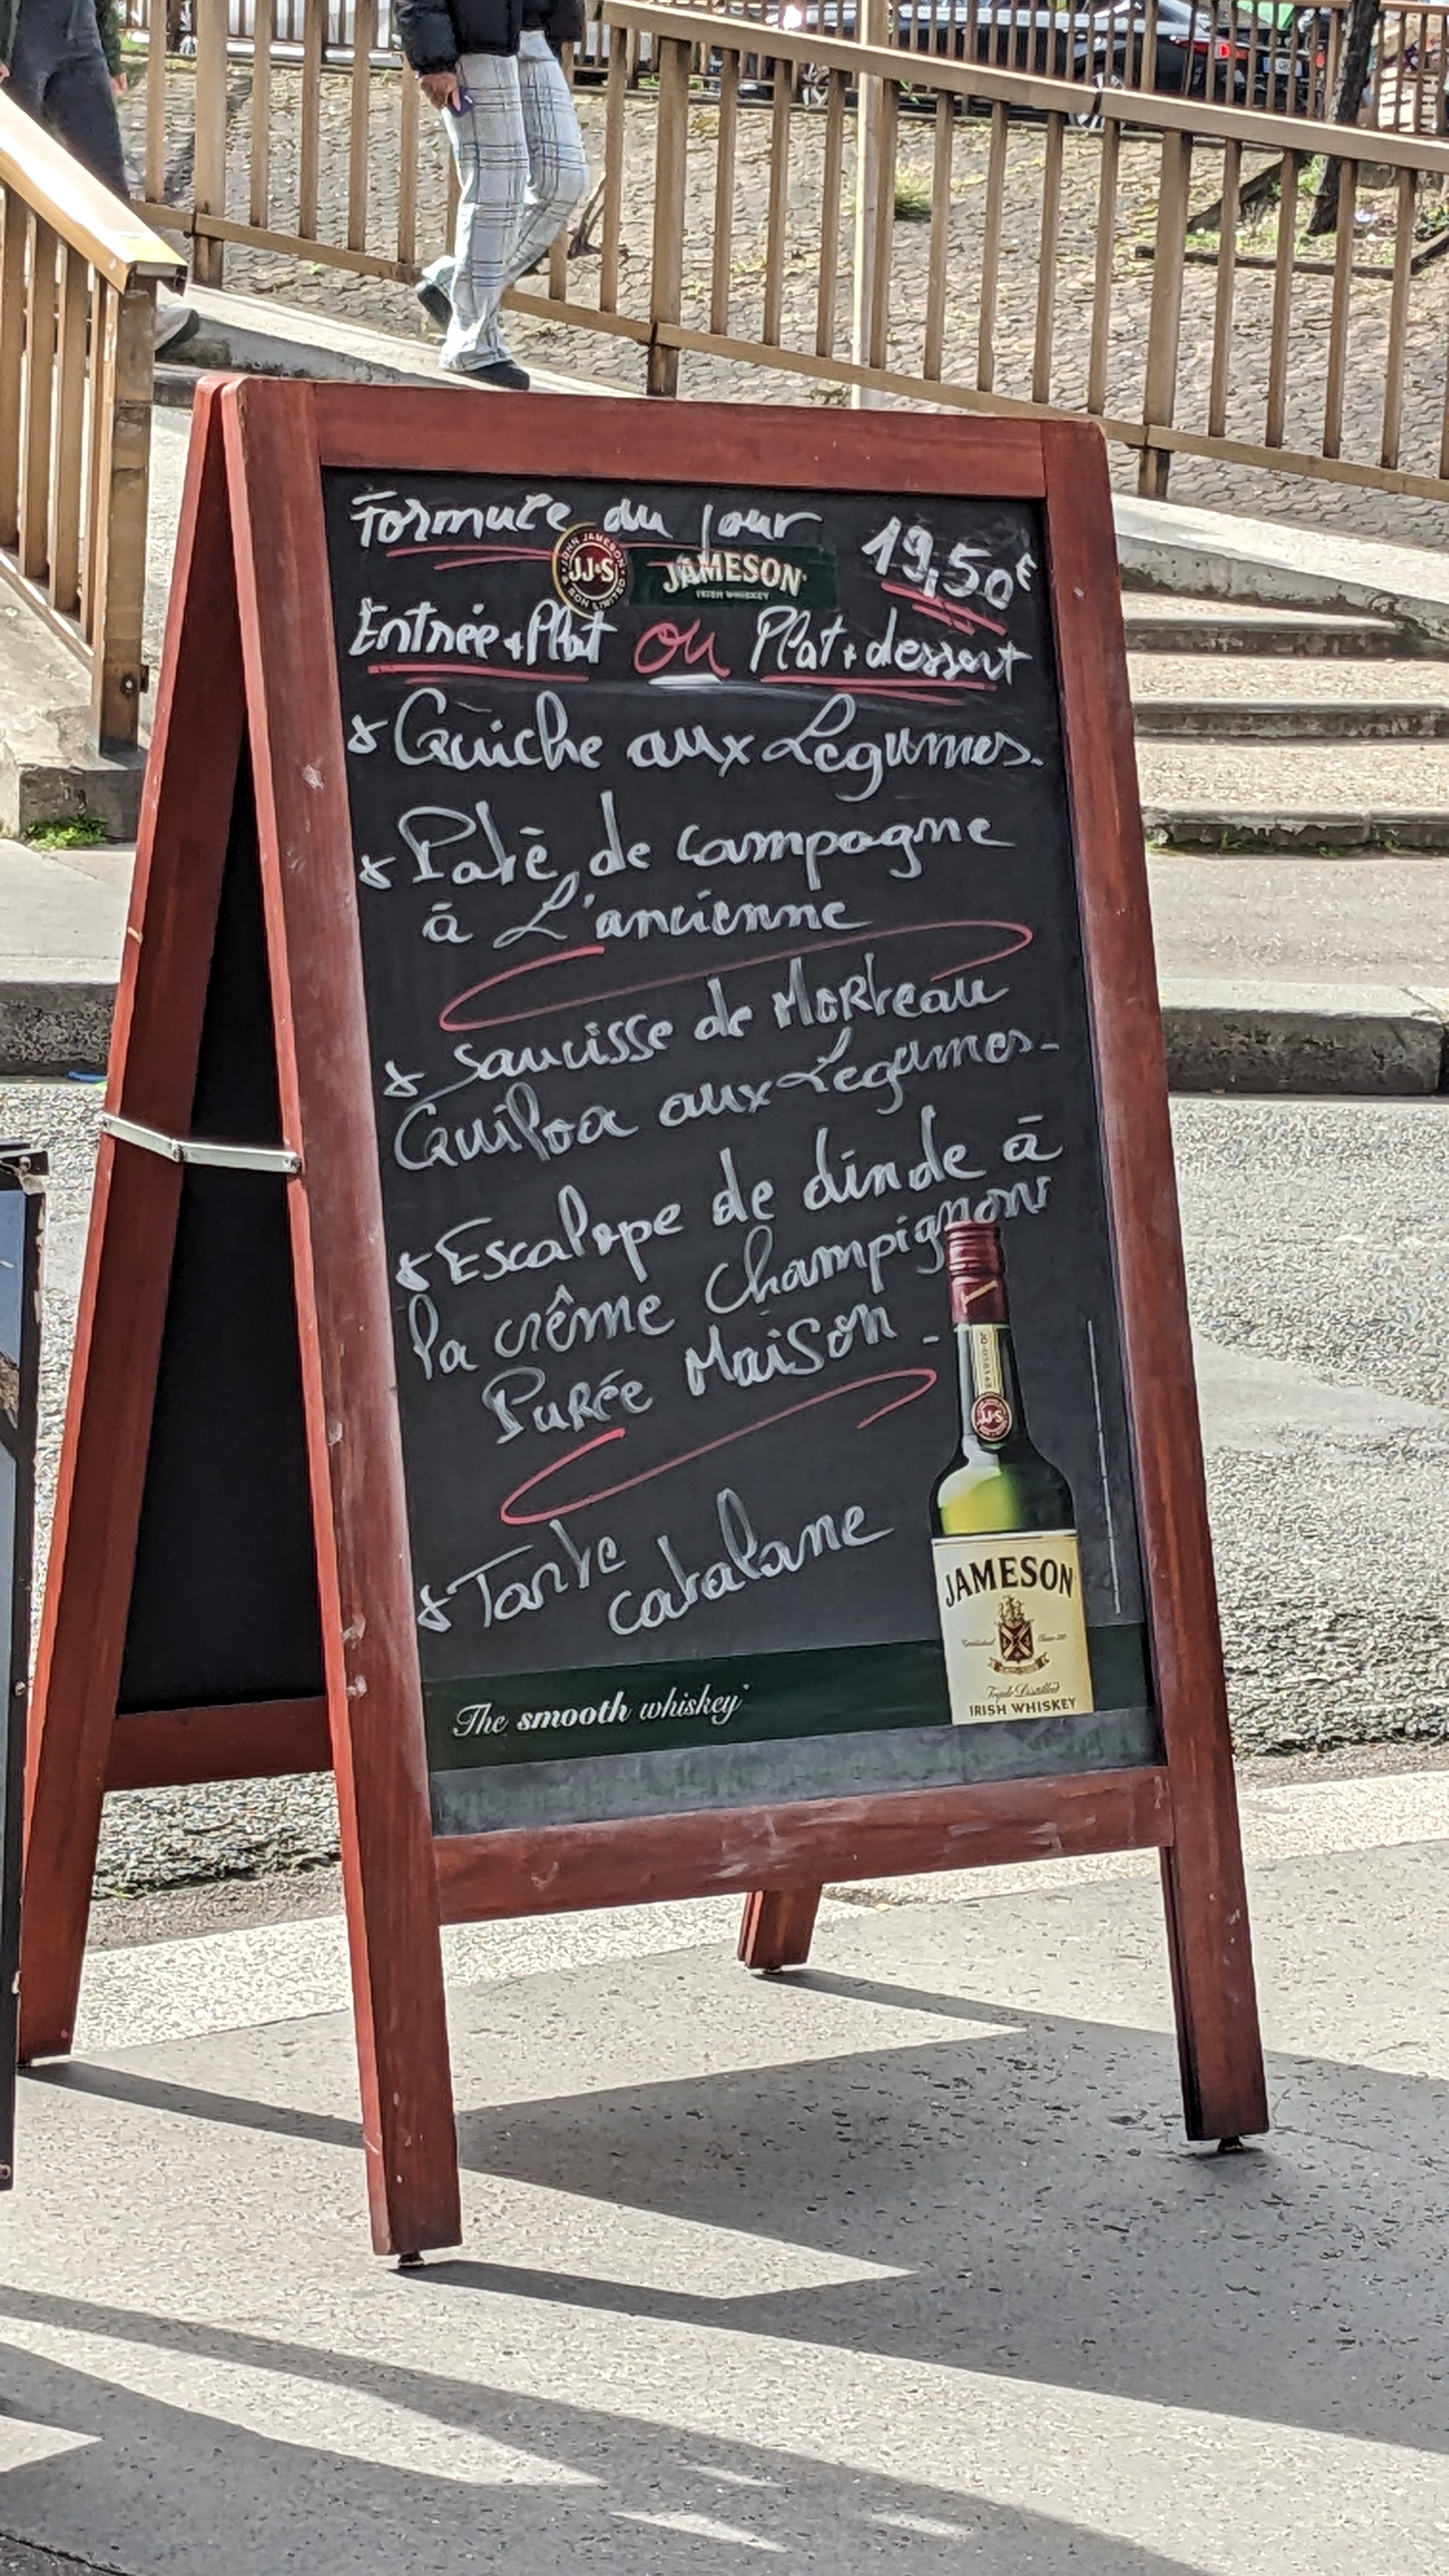 Formule du jour 19,50€
JOHN JAMESON
JJ&S
SON LIMITED
JAMESON
IRISH WHISKEY
Entrée + Plat ou Plat + dessert
* Quiche aux Légumes.
* Patè de campagne
à L'ancienne
* Saucisse de Morteau
aux Légumes -
* Escalope de dinde à
la crême champignons
Purée Maison -
* Tarte
catalane
JJ&S
JAMESON
Established Since 1780
Triple Distilled
IRISH WHISKEY
The smooth whiskey